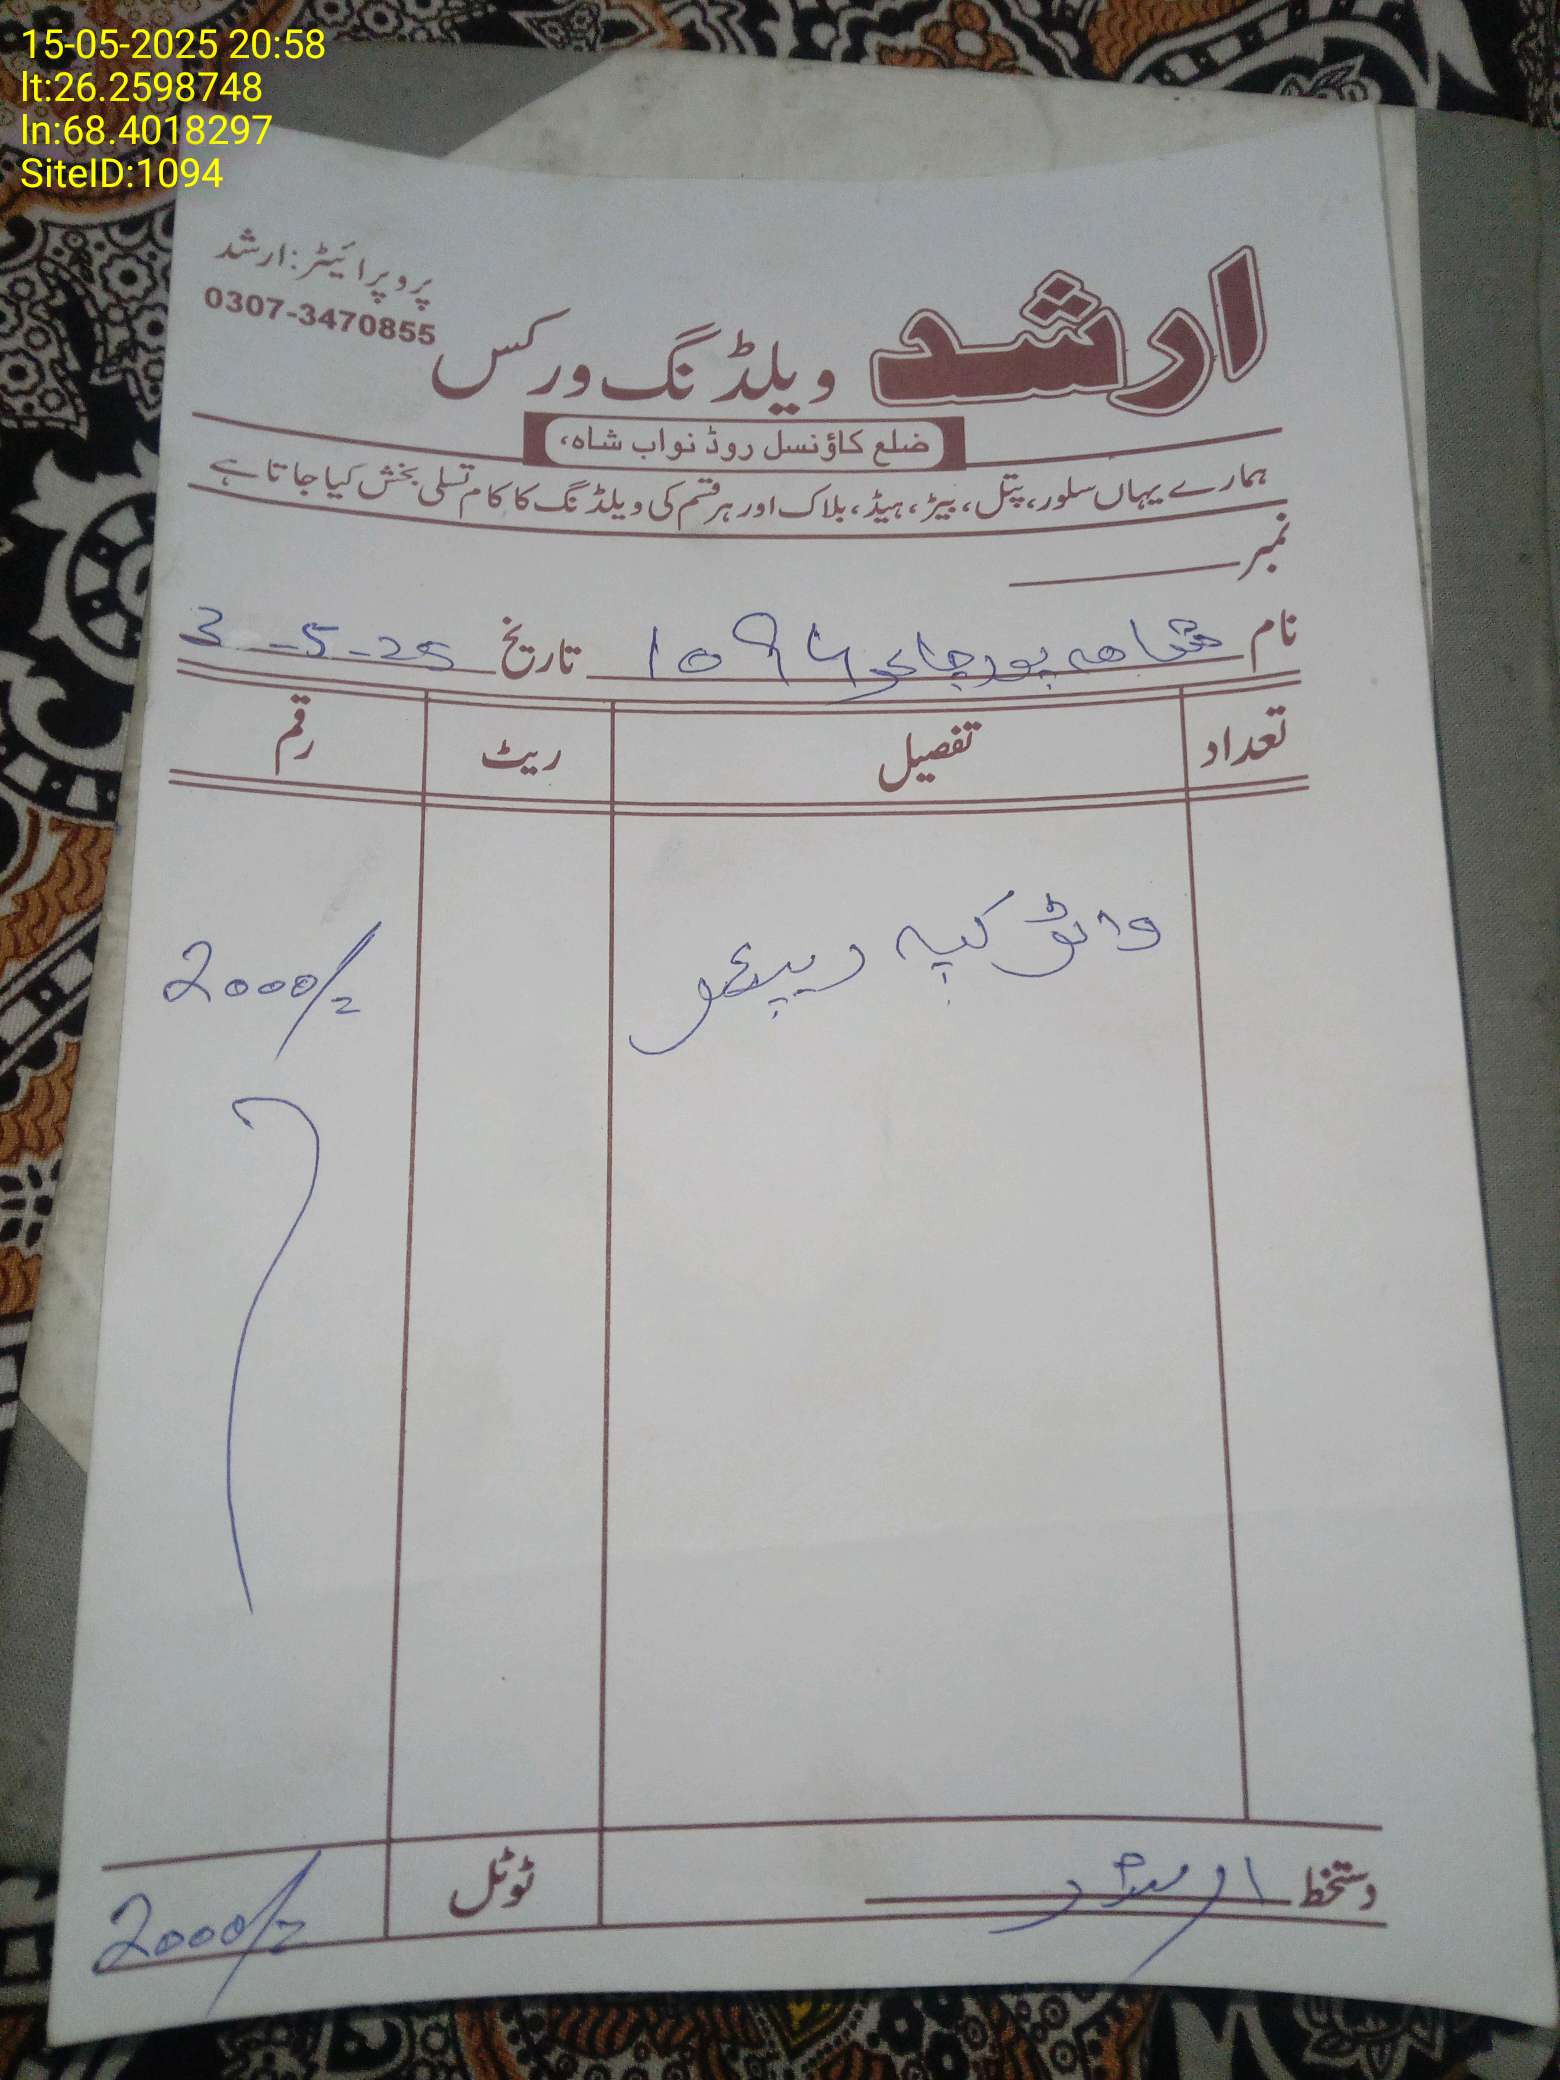 15-05-2025 20:58
lt:26.2598748
ln:68.4018297
SiteID:1094
پروپرائیٹر: ارشد
0307-3470855
ارشد ویلڈنگ ورکس
ضلع کاؤنسل روڈ نواب شاہ،
ہمارے یہاں سلور، پتل، بیڑ، ہیڈ، بلاک اور ہر قسم کی ویلڈنگ کا کام تسلی بخش کیا جاتا ہے
نمبر
نام شاہ پور چاکر 1094 تاریخ 3-5-25
تعداد تفصیل ریٹ رقم
کپہ 2000/=
دستخط ارشد ٹوٹل 2000/=